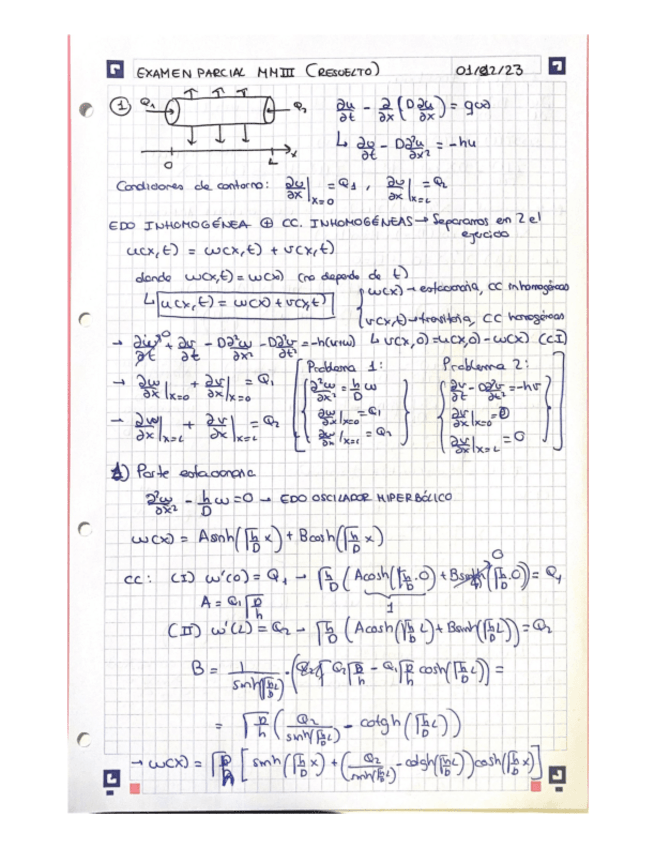 EXAMEN PARCIAL MMIII (RESUELTO) 01/12/23
① Q₁ Q₂ ∂u/∂t - ∂/∂x (D∂u/∂x) = g(x)
0 L x ↳ ∂u/∂t - D∂²u/∂x² = -hu
Condiciones de contorno: ∂u/∂x|x=0 = Q₁ , ∂u/∂x|x=L = Q₂
EDO INHOMOGÉNEA ⊕ CC. INHOMOGÉNEAS → Separamos en 2 el
ejercicio
u(x,t) = w(x,t) + v(x,t)
donde w(x,t) = w(x) (no depende de t)
↳ u(x,t) = w(x) + v(x,t) { w(x) → estacionaria, CC inhomogéneas
v(x,t) → transitoria, CC homogéneas
→ ∂w/∂t⁰ + ∂v/∂t - D∂²w/∂x² - D∂²v/∂t² = -h(v+w) ↳ v(x,0) = u(x,0) - w(x) (CI)
Problema 1: Problema 2:
→ ∂w/∂x|x=0 + ∂v/∂x|x=0 = Q₁ { ∂²w/∂x² = h/D w { ∂v/∂t - D∂²v/∂t² = -hv
∂w/∂x|x=0 = Q₁ ∂v/∂x|x=0 = 0
→ ∂w/∂x|x=L + ∂v/∂x|x=L = Q₂ ∂w/∂x|x=L = Q₂ ∂v/∂x|x=L = 0
1) Parte estacionaria
∂²w/∂x² - h/D w = 0 → EDO OSCILADOR HIPERBÓLICO
w(x) = A senh(√(h/D) x) + B cosh(√(h/D) x)
CC: (I) w'(0) = Q₁ → √(h/D) (A cosh(√(h/D)·0) + B senh(√(h/D)·0)) = Q₁
1 0
A = Q₁ √(D/h)
(II) w'(L) = Q₂ → √(h/D) (A cosh(√(h/D) L) + B senh(√(h/D) L)) = Q₂
B = 1/senh(√(h/D) L) · (Q₂√(D/h) - Q₁√(D/h) cosh(√(h/D) L)) =
= √(D/h) (Q₂/senh(√(h/D) L) - cotgh(√(h/D) L))
→ w(x) = √(D/h) [senh(√(h/D) x) + (Q₂/senh(√(h/D) L) - cotgh(√(h/D) L)) cosh(√(h/D) x)]